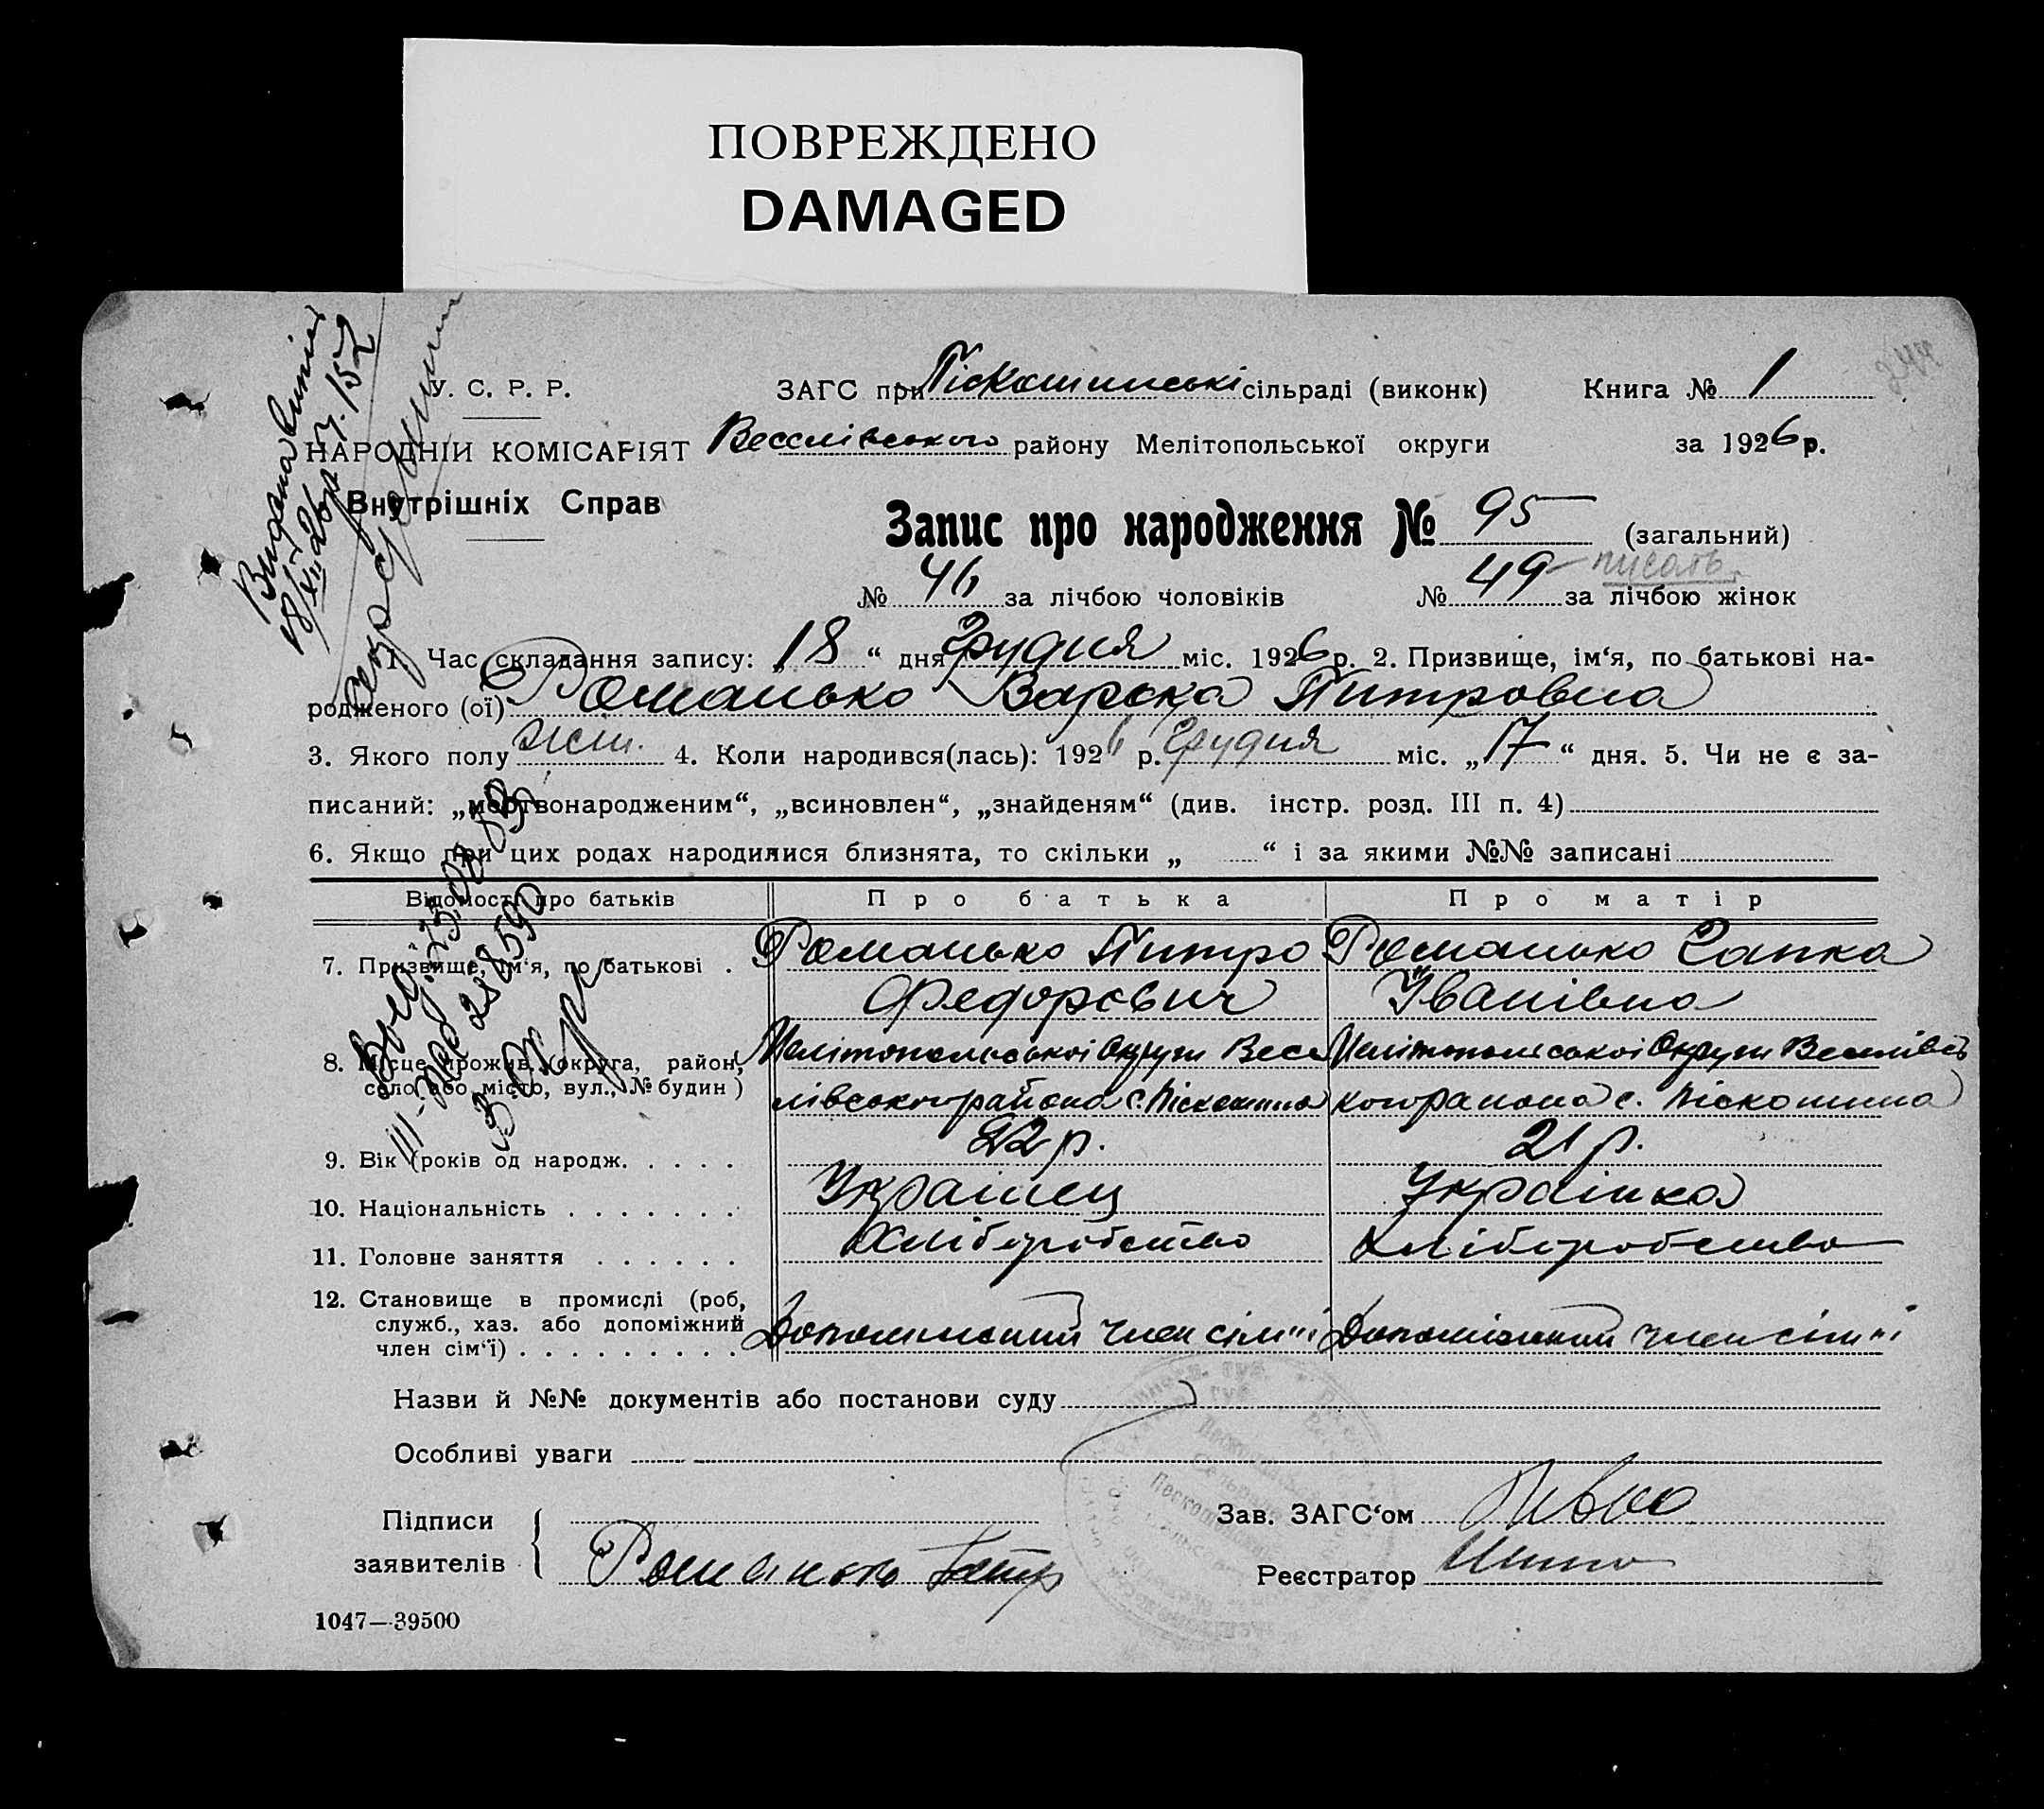 ПОВРЕЖДЕНО
DAMAGED
У. С. Р. Р.
ЗАГС при Піскошинські сільраді (виконк)
Книга № 1
НАРОДНІЙ КОМІСАРІЯТ
Веселівського району Мелітопольської округи
за 1926 р.
Внутрішніх Справ
Запис про народження № 95 (загальний)
писать
№ 46 за лічбою чоловіків № 49 за лічбою жінок
1. Час складання запису: „18“ дня Грудня міс. 1926 р. 2. Призвище, ім‘я, по батькові на-
родженого (ої) Романько Варька Питровна
3. Якого полу жін. 4. Коли народився(лась): 1926 р. Грудня міс. „17“ дня. 5. Чи не є за-
писаний: „мертвонародженим“, „всиновлен“, „знайденям“ (див. інстр. розд. III п. 4)
6. Якщо при цих родах народилися близнята, то скільки „ “ і за якими №№ записані
Відомості про батьків Про батька Про матір
7. Призвище, ім‘я, по батькові . Романько Питро Романько Гапка
Федорєвич Іванівна
8. Місце прожив. (округа, район, Мелітопольської Округи Весе Мелітопольської Округи Веселівсь
село або місто, вул., № будин) лівського района с. Піскошина кого района с. Піскошина
9. Вік (років од народж. . . . . 22 р. 21 р.
10. Національність . . . . . . . Українец Українка
11. Головне заняття . . . . . . Хліборобство Хліборобство
12. Становище в промислі (роб,
служб., хаз. або допоміжний Допоміжний член сім"ї Допоміжний член сім"ї
член сім‘ї) . . . . . . . . .
Назви й №№ документів або постанови суду
Особливі уваги
Підписи
заявителів
Романько Петр
Зав. ЗАГС‘ом
Реєстратор
1047—39500